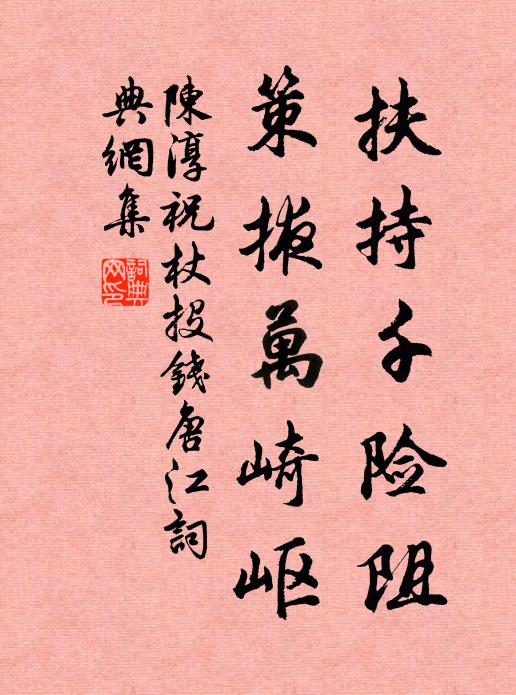 扶持千险阻
策掖萬崎岖
陳淳祝杖投錢唐江詞
典網集
詞典
网印